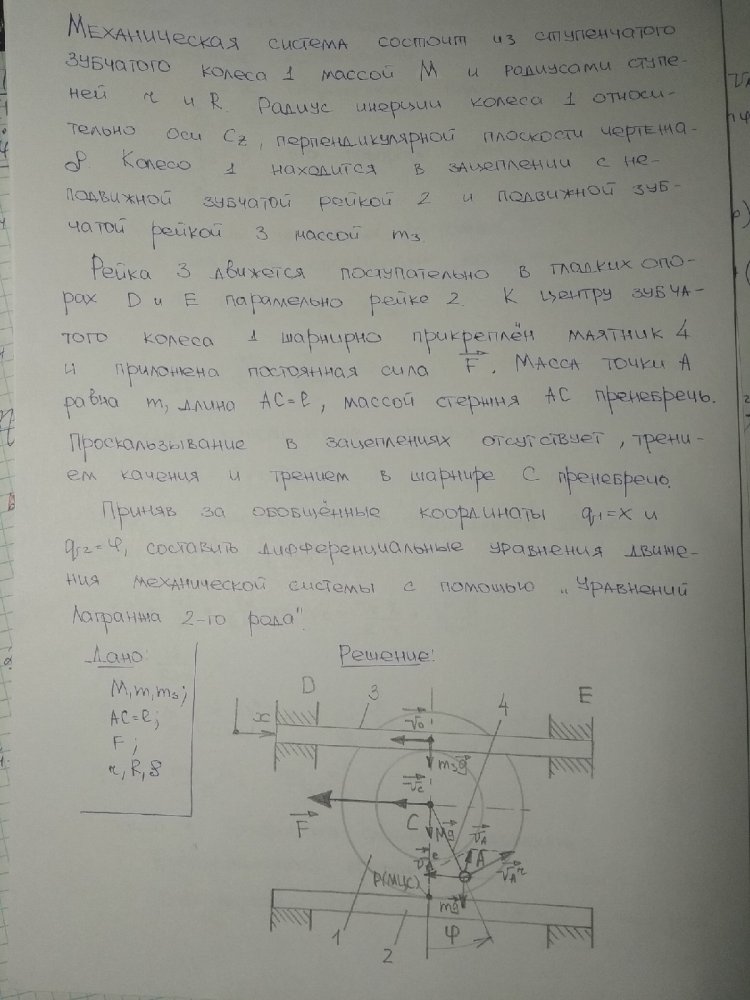 Механическая система состоит из ступенчатого
зубчатого колеса 1 массой M и радиусами ступе-
ней r и R. Радиус инерции колеса 1 относи-
тельно оси Cz, перпендикулярной плоскости чертежа-
ρ Колесо 1 находится в зацеплении с не-
подвижной зубчатой рейкой 2 и подвижной зуб-
чатой рейкой 3 массой m3
Рейка 3 движется поступательно в гладких опо-
рах D и E паралельно рейке 2. К центру зубча-
того колеса 1 шарнирно прикреплён маятник 4
и приложена постоянная сила F. Масса точки A
равна m, длина AC=l, массой стержня AC пренебречь.
Проскальзывание в зацеплениях отсутствует, трени-
ем качения и трением в шарнире C пренебречь.
Приняв за обобщённые координаты q1=x и
q2=φ, составить дифференциальные уравнения движе-
ния механической системы с помощью „Уравнений
Лагранжа 2-го рода".
Дано:
M, m, m3;
AC=l;
F;
r, R, ρ
Решение:
D
3
4
E
x
m3g
vC
F
C
Mg
vA
A
vAr
P(МЦС)
mg
1
2
φ